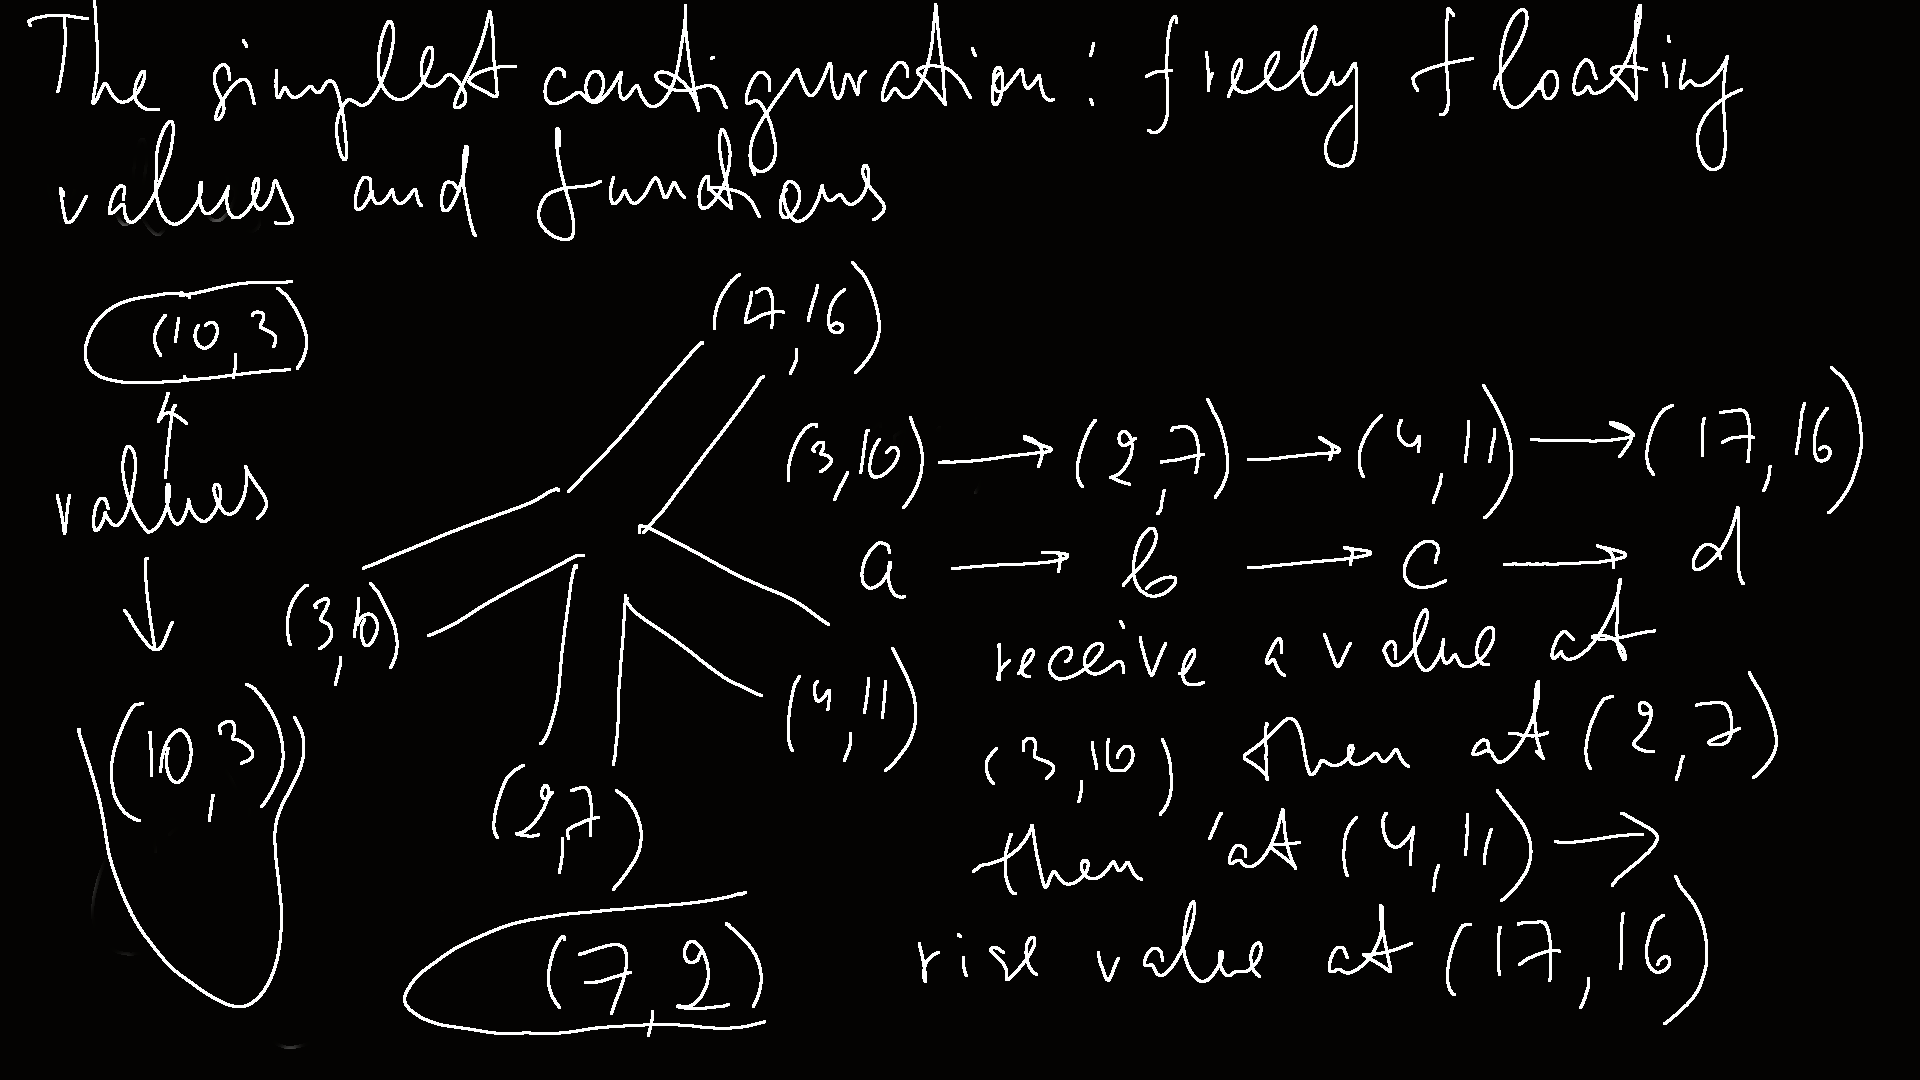 The simplest configuration: freely floating
values and functions
(10,3)
values
(10,3)
(17,16)
(3,10)
(2,7)
(4,11)
(7,2)
(3,10) → (2,7) → (4,11) → (17,16)
a → b → c → d
receive a value at
(3,10) then at (2,7)
then at (4,11) →
rise value at (17,16)